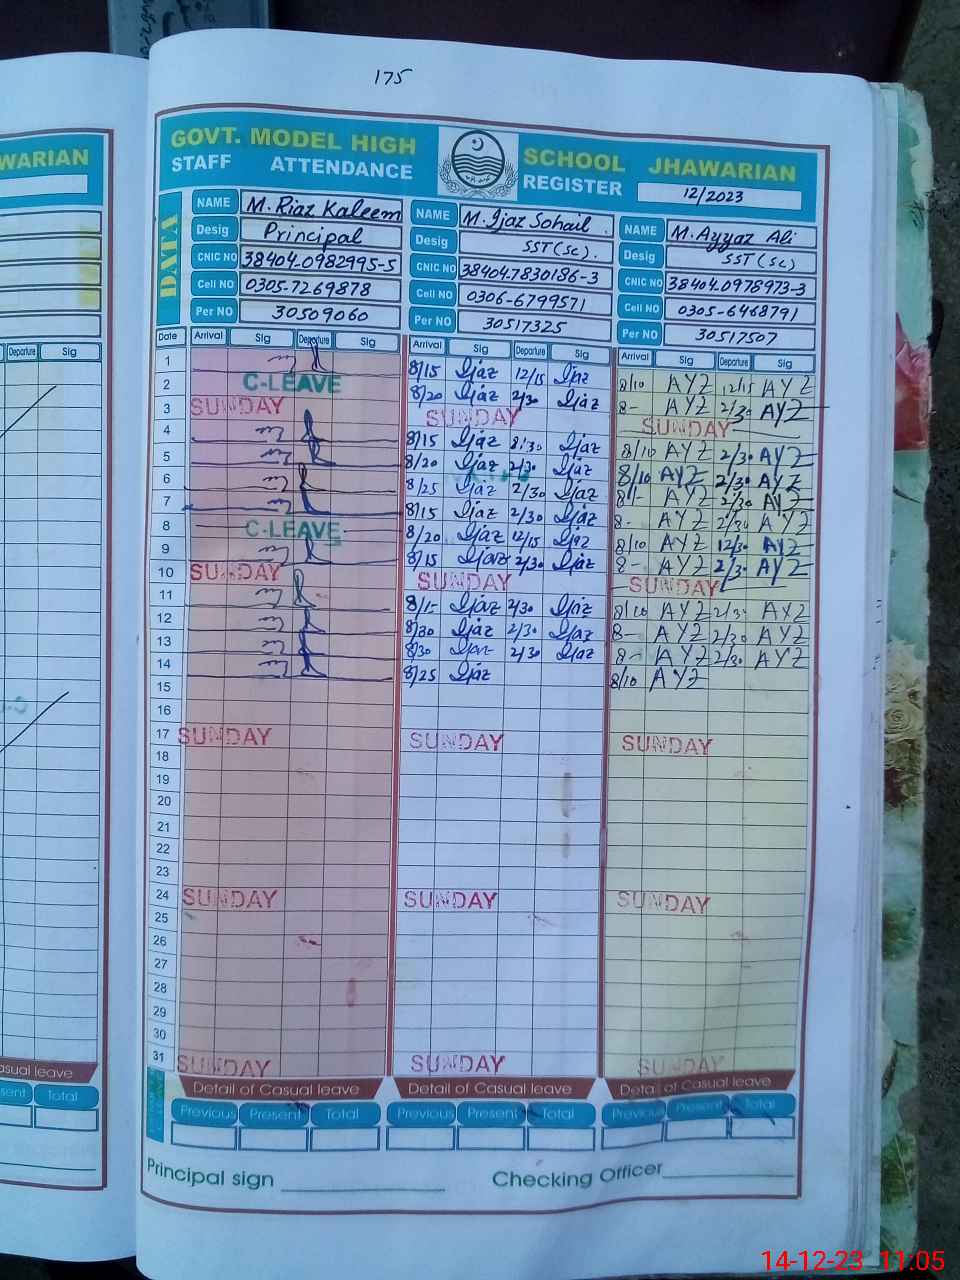 175
WARIAN
GOVT. MODEL HIGH SCHOOL JHAWARIAN
STAFF ATTENDANCE REGISTER 12/2023
DATA
NAME M. Riaz Kaleem NAME M. Ijaz Sohail. NAME M. Ayyaz Ali
Desig Principal Desig SST (Sc). Desig SST (Sc)
CNIC NO 38404.0982995-5 CNIC NO 38404.7830186-3 CNIC NO 38404.0976973-3
Cell NO 0305-7269878 Cell NO 0306-6799571 Cell NO 0305-6468791
Per NO 30509060 Per NO 30517325 Per NO 30517507
Departure Sig
Date Arrival Sig Departure Sig Arrival Sig Departure Sig Arrival Sig Departure Sig
1 8/15 Ijaz 12/15 Ijaz 8/10 AYZ 12/15 AYZ
2 C-LEAVE 8/20 Ijaz 2/30 Ijaz 8- AYZ 2/30 AYZ
3 SUNDAY SUNDAY SUNDAY
4 8/15 Ijaz 8/30 Ijaz 8/10 AYZ 2/30 AYZ
5 8/20 Ijaz 2/30 Ijaz 8/10 AYZ 2/30 AYZ
6 8/25 Ijaz 2/30 Ijaz 8- AYZ 2/30 AYZ
7 8/15 Ijaz 2/30 Ijaz 8- AYZ 2/30 AYZ
8 C-LEAVE 8/20 Ijaz 12/15 Ijaz 8/10 AYZ 12/30 AYZ
9 8/15 Ijaz 2/30 Ijaz 8- AYZ 2/30 AYZ
10 SUNDAY SUNDAY SUNDAY
11 8/15 Ijaz 2/30 Ijaz 8/10 AYZ 2/30 AYZ
12 8/30 Ijaz 2/30 Ijaz 8- AYZ 2/30 AYZ
13 8/30 Ijaz 2/30 Ijaz 8- AYZ 2/30 AYZ
14 8/25 Ijaz 8/10 AYZ
15
16
17 SUNDAY SUNDAY SUNDAY
18
19
20
21
22
23
24 SUNDAY SUNDAY SUNDAY
25
26
27
28
29
30
31 SUNDAY SUNDAY SUNDAY
asual leave
Detail of Casual leave Detail of Casual leave Detail of Casual leave
sent Total
Previous Present Total Previous Present Total Previous Present Total
Principal sign Checking Officer
14-12-23 11:05